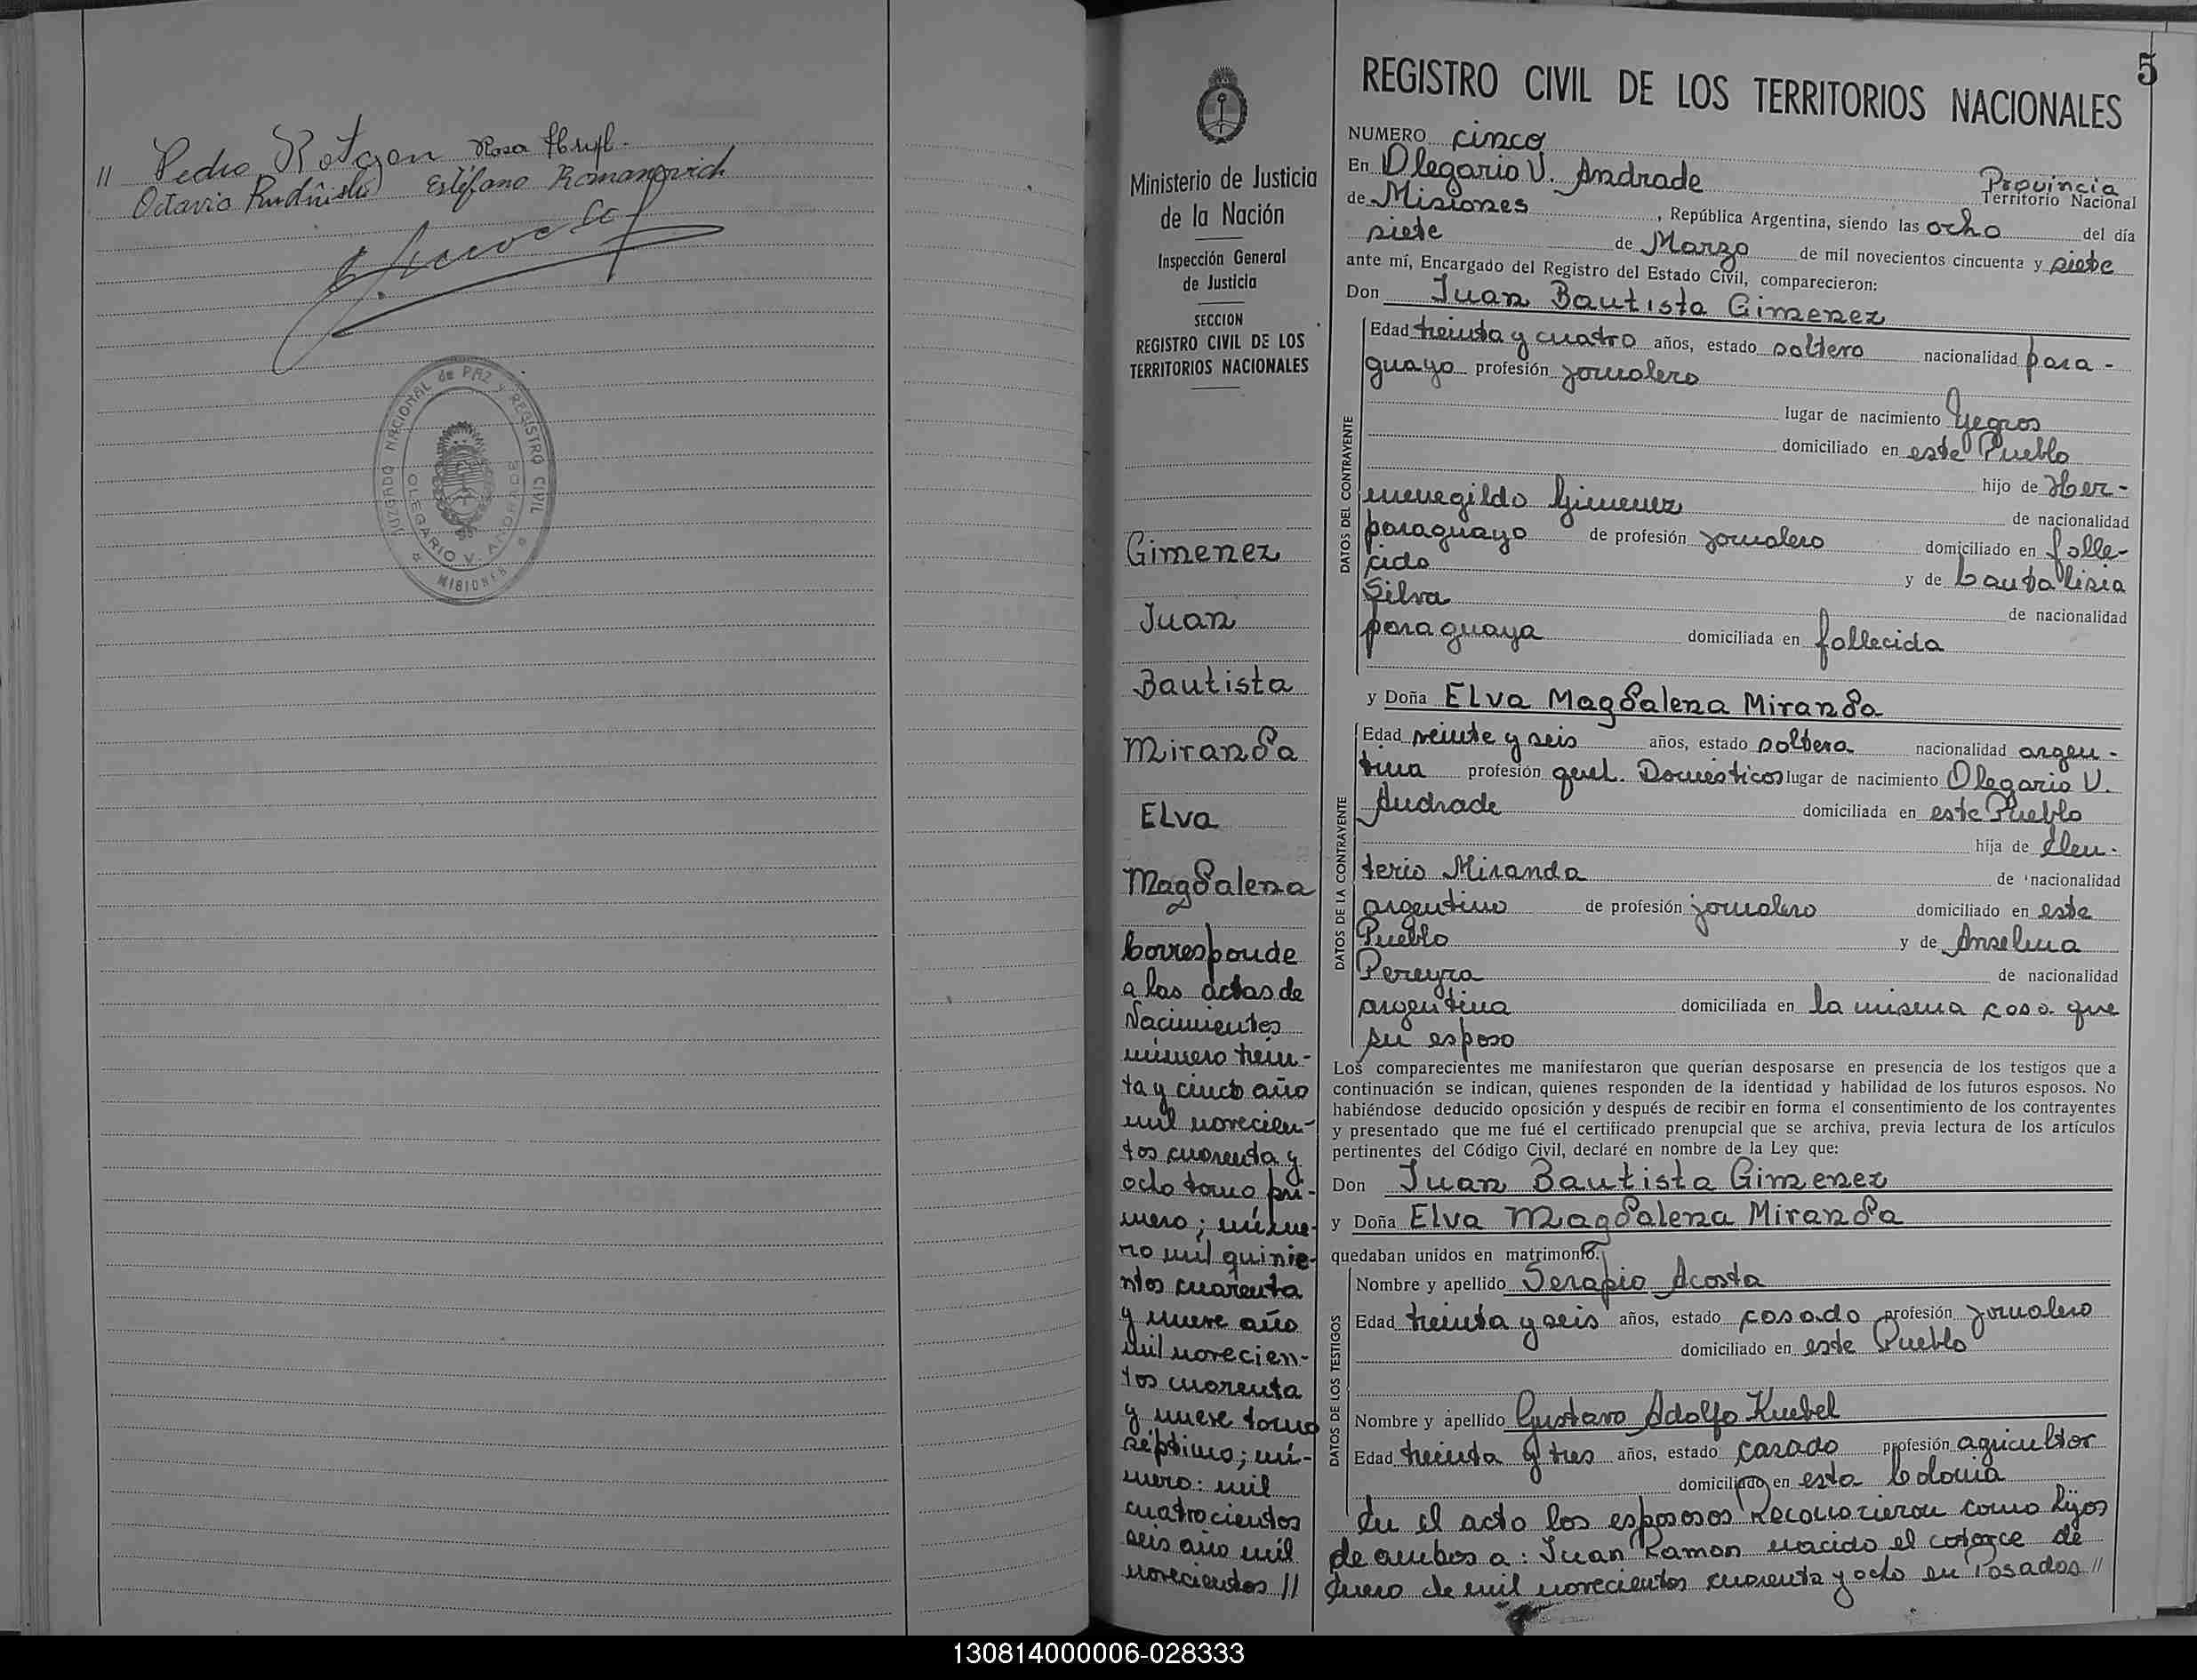 // Pedro Rotczen Rosa
Octavio Estéfano Romanovich
JUZGADO NACIONAL de PAZ y REGISTRO CIVIL
OLEGARIO V. ANDRADE
MISIONES
5
Ministerio de Justicia
de la Nación
Inspección General
de Justicia
SECCION
REGISTRO CIVIL DE LOS
TERRITORIOS NACIONALES
Gimenez
Juan
Bautista
Miranda
Elva
Magdalena
Corresponde
a las actas de
Nacimientos
número trein-
ta y cinco año
mil novecien-
tos cuarenta y
ocho tomo pri-
mero; núme-
ro mil quinie-
ntos cuarenta
y nueve año
mil novecien-
tos cuarenta
y nueve tomo
séptimo; nú-
mero: mil
cuatrocientos
seis año mil
novecientos //
REGISTRO CIVIL DE LOS TERRITORIOS NACIONALES
NUMERO cinco
En Olegario V. Andrade Provincia Territorio Nacional
de Misiones, República Argentina, siendo las ocho del día
siete de Marzo de mil novecientos cincuenta y siete
ante mí, Encargado del Registro del Estado Civil, comparecieron:
Don Juan Bautista Gimenez
DATOS DEL CONTRAYENTE
Edad treinta y cuatro años, estado soltero nacionalidad para-
guayo profesión jornalero
lugar de nacimiento Yegros
domiciliado en este Pueblo
hijo de Her-
menegildo Gimenez
de nacionalidad
paraguayo de profesión jornalero domiciliado en falle-
cido y de Cantalisia
Silva de nacionalidad
paraguaya domiciliada en fallecida
y Doña Elva Magdalena Miranda
DATOS DE LA CONTRAYENTE
Edad veinte y seis años, estado soltera nacionalidad argen-
tina profesión quel. Domésticos lugar de nacimiento Olegario V.
Andrade domiciliada en este Pueblo
hija de Eleu-
terio Miranda de nacionalidad
argentino de profesión jornalero domiciliado en este
Pueblo y de Anselma
Pereyra de nacionalidad
argentina domiciliada en la misma casa que
su esposo
Los comparecientes me manifestaron que querían desposarse en presencia de los testigos que a
continuación se indican, quienes responden de la identidad y habilidad de los futuros esposos. No
habiéndose deducido oposición y después de recibir en forma el consentimiento de los contrayentes
y presentado que me fué el certificado prenupcial que se archiva, previa lectura de los artículos
pertinentes del Código Civil, declaré en nombre de la Ley que:
Don Juan Bautista Gimenez
y Doña Elva Magdalena Miranda
quedaban unidos en matrimonio.
DATOS DE LOS TESTIGOS
Nombre y apellido Serapio Acosta
Edad treinta y seis años, estado casado profesión jornalero
domiciliado en este Pueblo
Nombre y apellido Gustavo Adolfo Kuebel
Edad treinta y tres años, estado casado profesión agricultor
domiciliado en esta Colonia
En el acto los espososos reconocieron como hijos
de ambos a: Juan Ramon nacido el catorce de
Enero de mil novecientos cuarenta y ocho en Posadas //
130814000006-028333